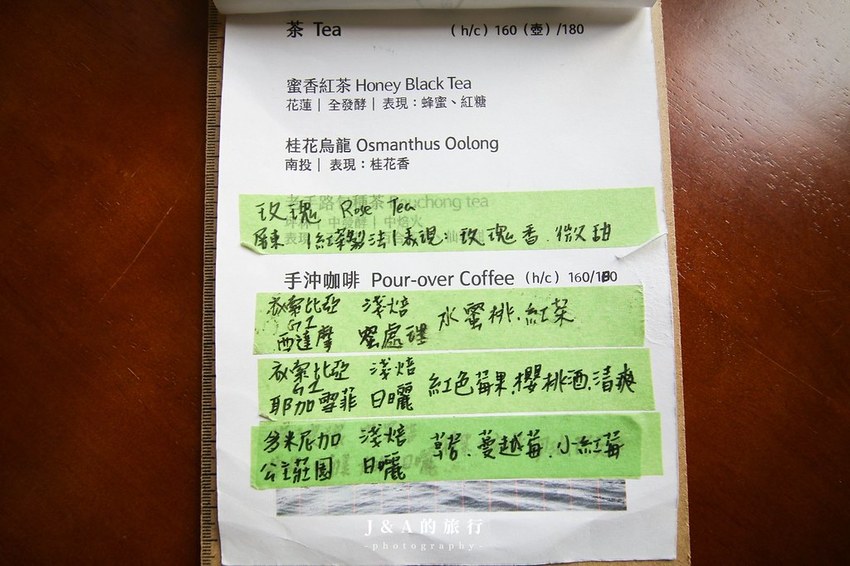 茶 Tea (h/c) 160 (壺) /180
蜜香紅茶 Honey Black Tea
花蓮 | 全發酵 | 表現：蜂蜜、紅糖
桂花烏龍 Osmanthus Oolong
南投 | 表現：桂花香
玫瑰 Rose Tea
屏東 | 紅茶製法 | 表現：玫瑰香.微甜
手沖咖啡 Pour-over Coffee (h/c) 160/180
衣索比亞 淺焙
G1 水蜜桃.紅茶
西達摩 蜜處理
衣索比亞 淺焙
G1 紅色莓果.櫻桃酒.清爽
耶加雪菲 日曬
多米尼加 淺焙 草莓.蔓越莓.小紅莓
公主莊園 日曬
J & A 的旅行
-photography-